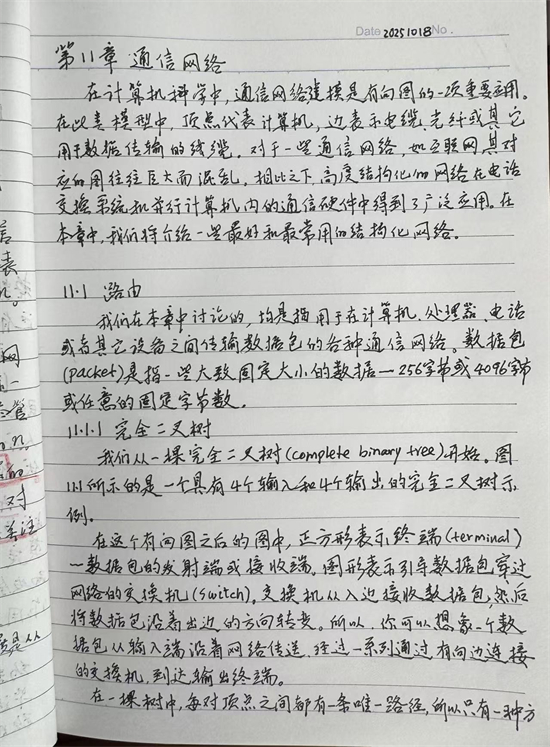 Date 20251018 No.
第11章 通信网络
在计算机科学中，通信网络建模是有向图的一项重要应用。
在此类模型中，顶点代表计算机，边表示电缆、光纤或其它
用于数据传输的线缆。对于一些通信网络，如互联网，其对
应的图往往巨大而混乱，相比之下，高度结构化的网络在电话
交换系统和并行计算机内的通信硬件中得到了广泛应用。在
本章中，我们将介绍一些最好和最常用的结构化网络。
11.1 路由
我们在本章中讨论的，均是指用于在计算机、处理器、电话
或者其它设备之间传输数据包的各种通信网络。数据包
(packet)是指一些大致固定大小的数据—256字节或4096字节
或任意的固定字节数。
11.1.1 完全二叉树
我们从一棵完全二叉树(complete binary tree)开始。图
11.1所示的是一个具有4个输入和4个输出的完全二叉树示
例。
在这个有向图之后的图中，正方形表示终端(terminal)
—数据包的发射端或接收端。圆形表示引导数据包穿过
网络的交换机(switch)。交换机从入边接收数据包，然后
将数据包沿着出边的方向转发。所以，你可以想象一个数
据包从输入端沿着网络传送，经过一系列通过有向边连接
的交换机，到达输出终端。
在一棵树中，每对顶点之间都有一条唯一路径，所以只有一种方